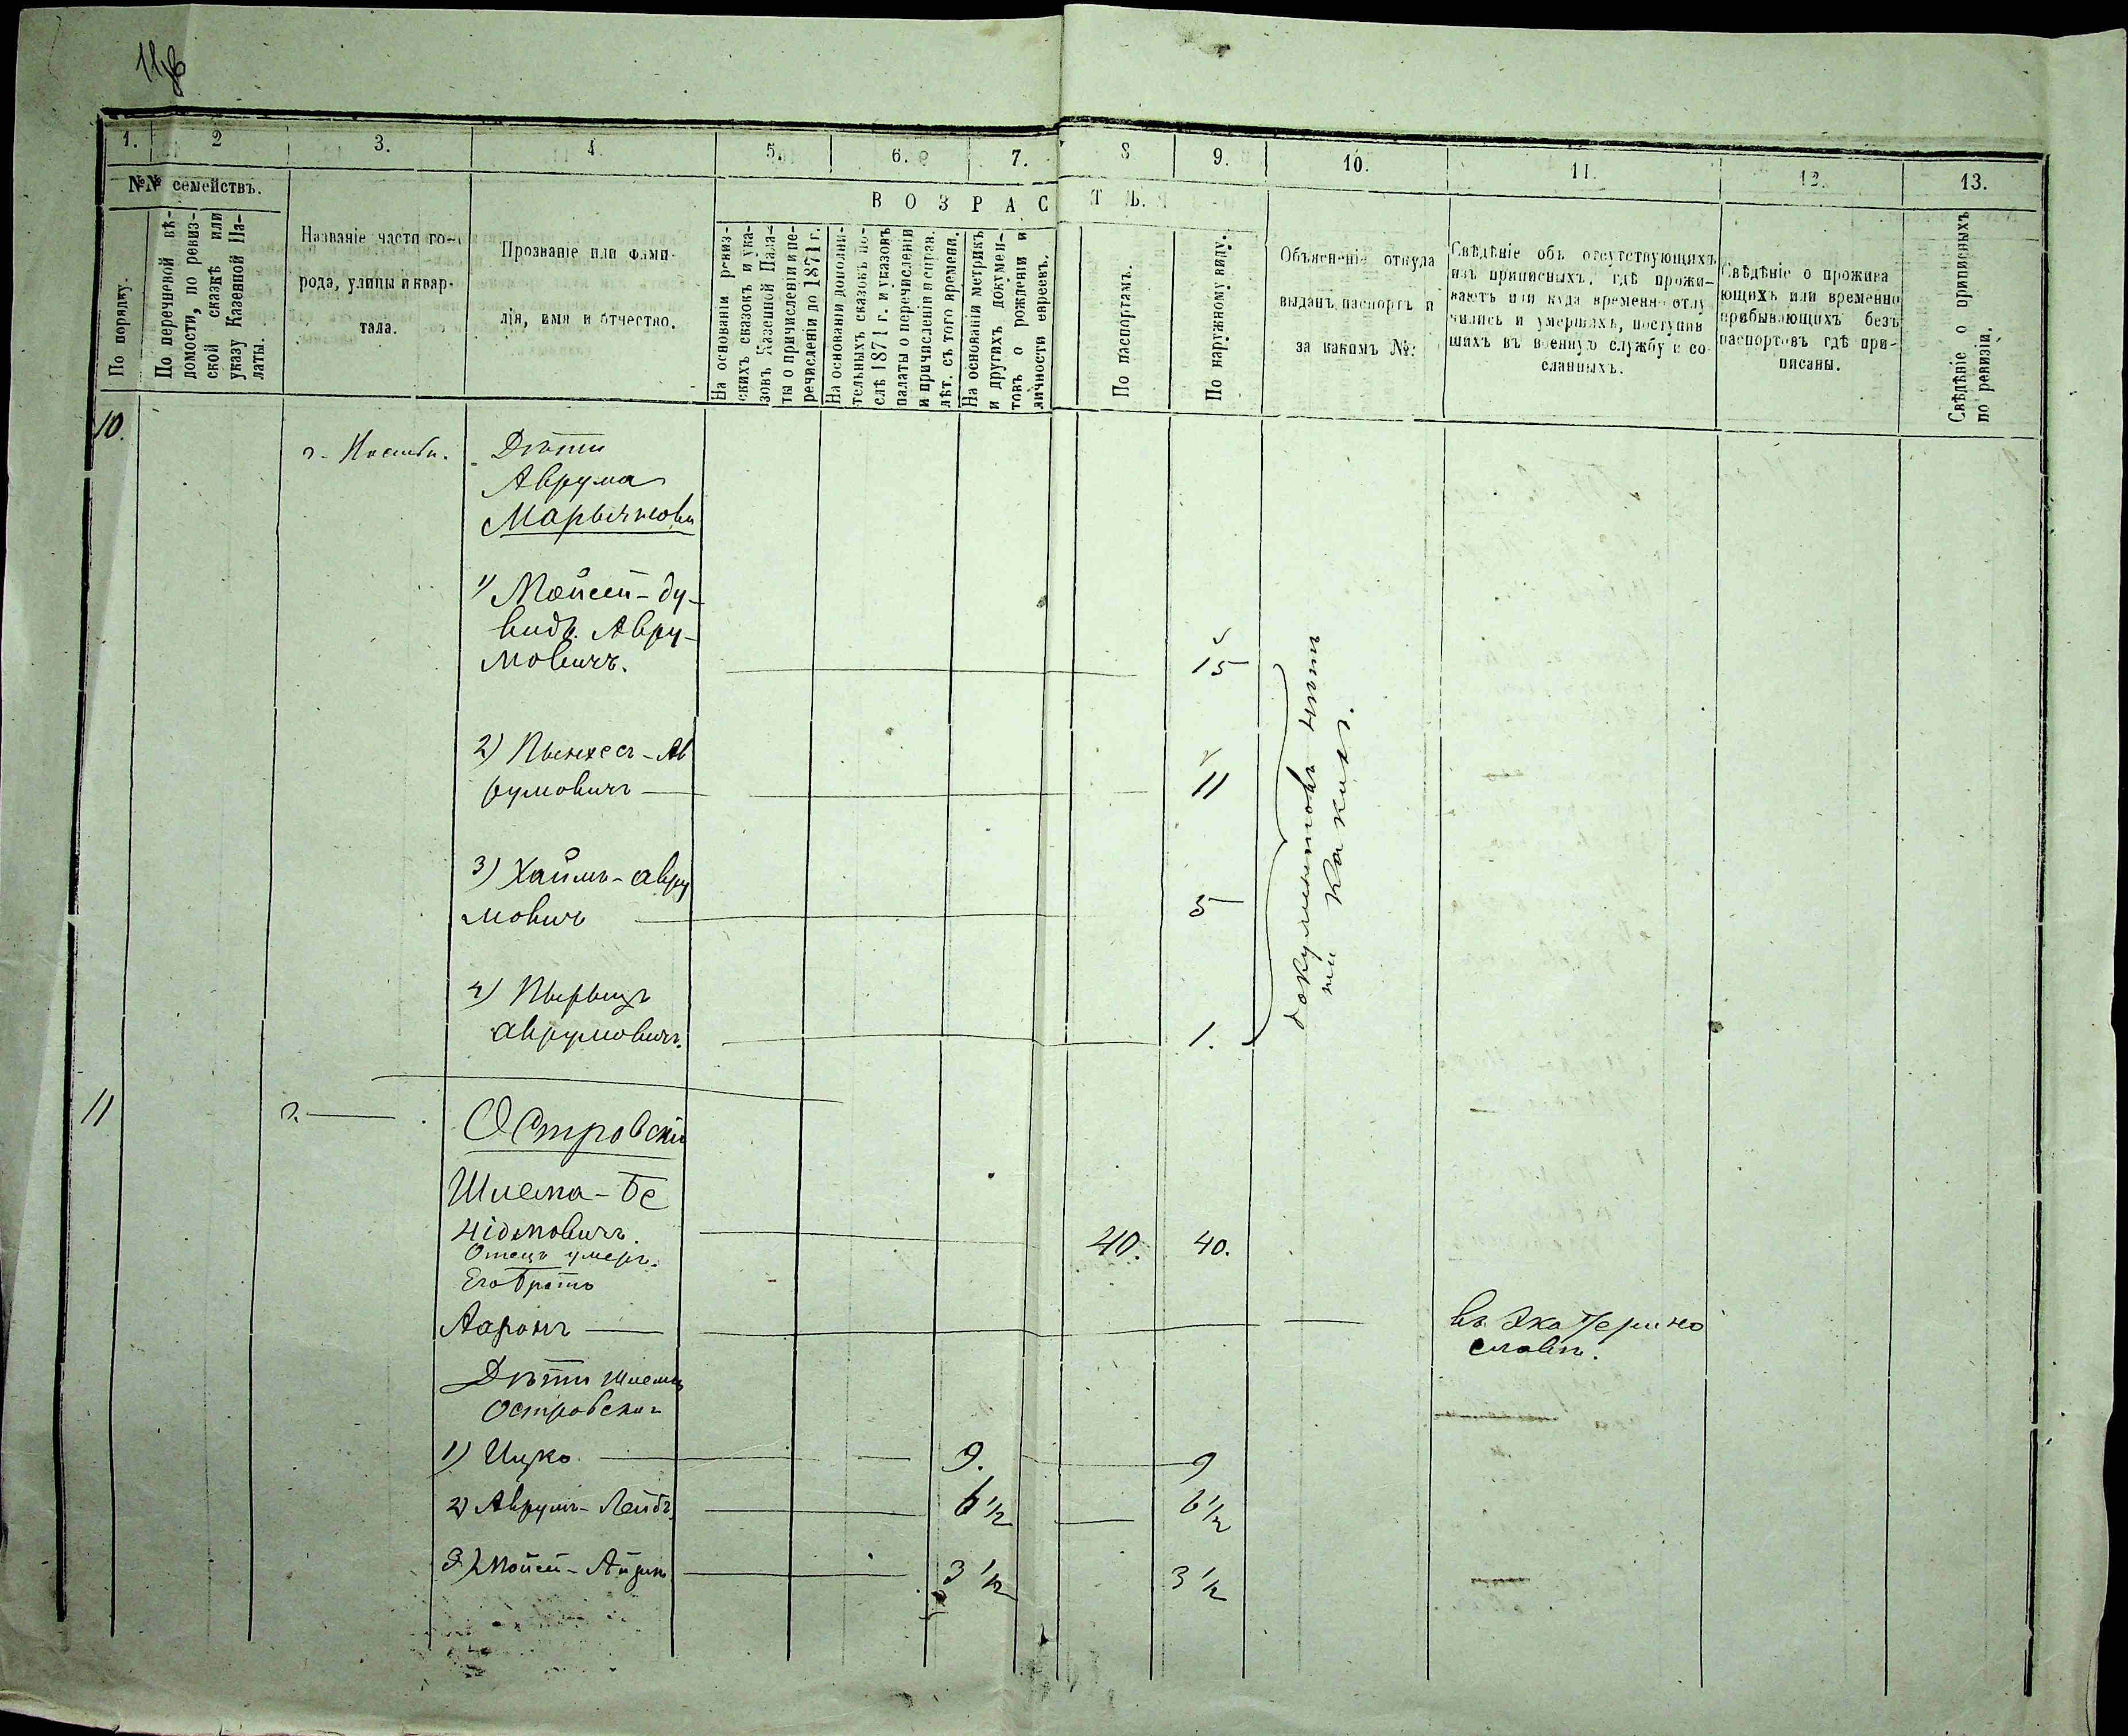 1. 2 3. 4. 5. 6. 7. 8 9. 10. 11. 12. 13.
№№ семействъ.
По порядку.
По перечневой вѣ-
домости, по ревиз-
ской сказкѣ или
указу Казенной Па-
латы.
Названіе части го-
рода, улицы и квар-
тала.
Прозваніе или фами-
лія, имя и отчество.
ВОЗРАСТЪ.
На основаніи ревиз-
скихъ сказокъ и ука-
зовъ Казенной Пала-
ты о причисленіи и пе-
речисленіи до 1871 г.
На основаніи дополни-
тельныхъ сказокъ по-
слѣ 1871 г. и указовъ
палаты о перечисленіи
и причисленіи
лѣт. съ того времени.
На основаніи метрикъ
и другихъ докумен-
товъ о рожденіи и
личности евреевъ.
По паспортамъ.
По наружному виду.
Объясненіе откуда
выданъ паспортъ и
за какимъ №.
Свѣдѣніе объ отсутствующихъ
изъ приписныхъ, гдѣ прожи-
ваютъ или куда временно отлу
чились и умершихъ, поступив
шихъ въ военную службу и со
сланныхъ.
Свѣдѣніе о прожива
ющихъ или временно
прибывающихъ безъ
паспортовъ гдѣ при-
писаны.
Свѣдѣніе о приписныхъ
по ревизіи.
10.
Дѣти
Аврума
1) Мойсей-Ду-
видъ Авру-
мовичъ. 15
2) Пынхесъ-Ав
румовичъ 11
3) Хаимъ-Авру
мовичъ 5
4) Пырыцъ
Аврумовичъ. 1.
документовъ нѣтъ
ни какихъ.
11
Островскій
Шлема-Бе
ніомовичъ. 40. 40.
Отецъ умеръ.
Его братъ
Ааронъ въ Екатерино
славѣ.
Дѣти Шлемы
Островскаг
1) Ицко 9. 9
2) Аврумъ-Лейбъ 6 1/2 6 1/2
3) Мойсей-Айзикъ 3 1/2 3 1/2